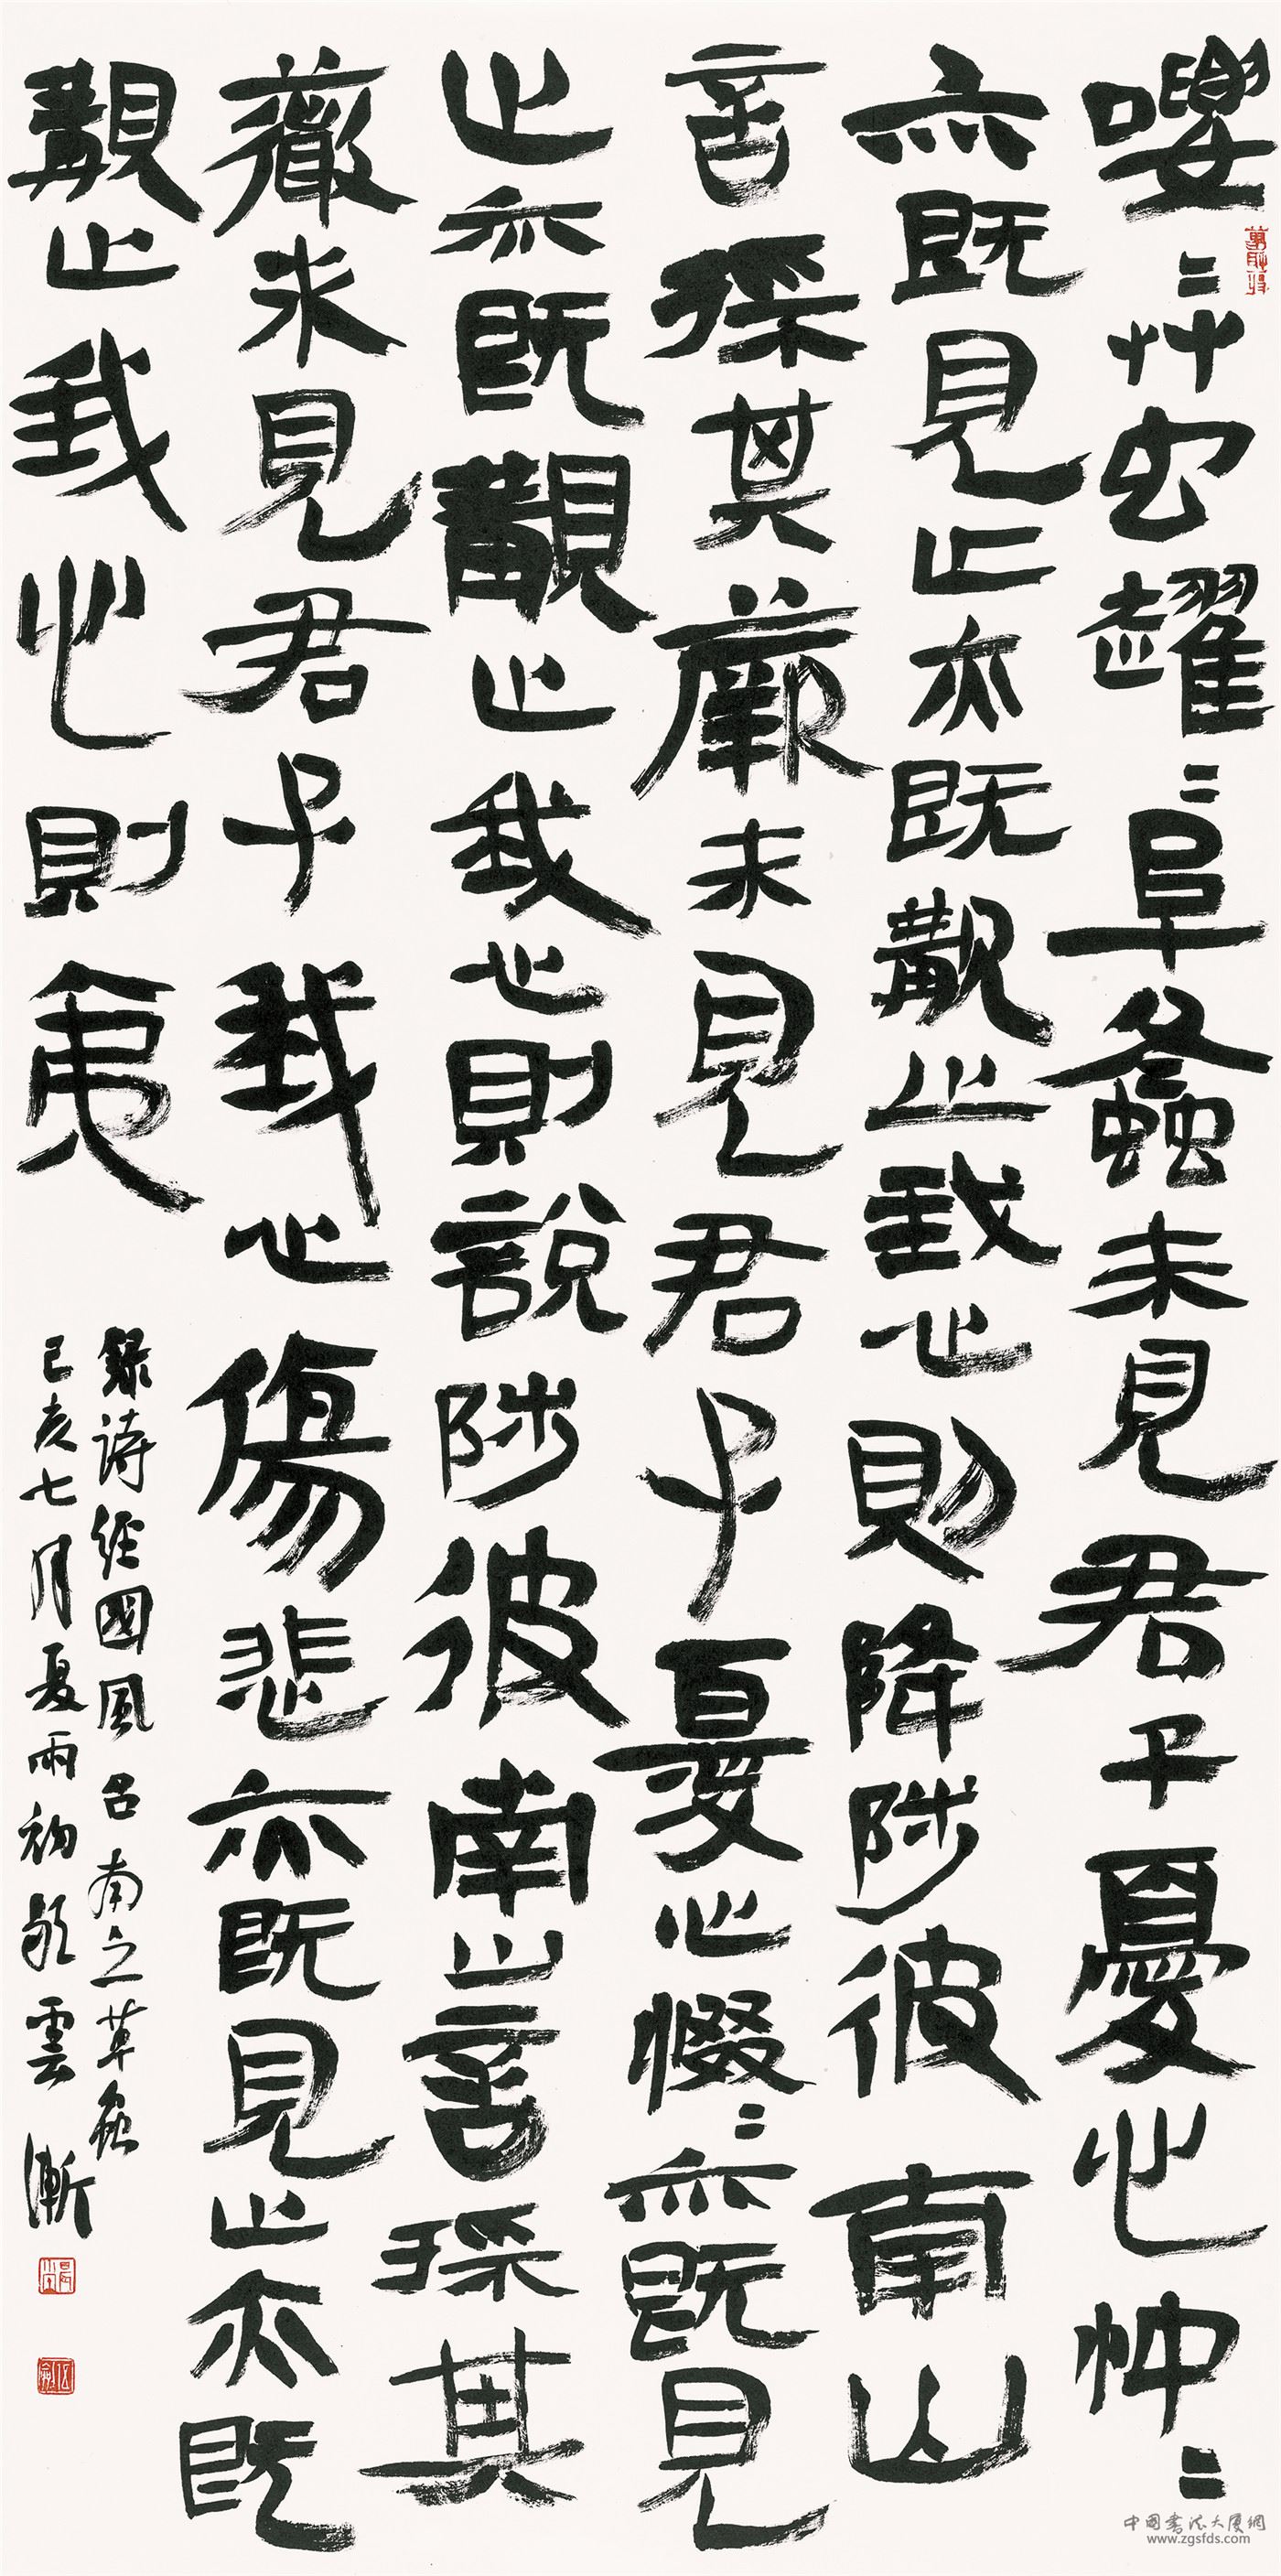 喓〻艸虫趯〻阜螽未見君子憂心忡〻
亦既見止亦既覯止我心則降陟彼南山
言採其蕨未見君子憂心惙〻亦既見
止亦既覯止我心則說陟彼南山言採其
薇未見君子我心傷悲亦既見止亦既
覯止我心則夷
錄詩經國風召南之草蟲
己亥七月夏雨初歇雲漸
中國書法大廈網
www.zgsfds.com